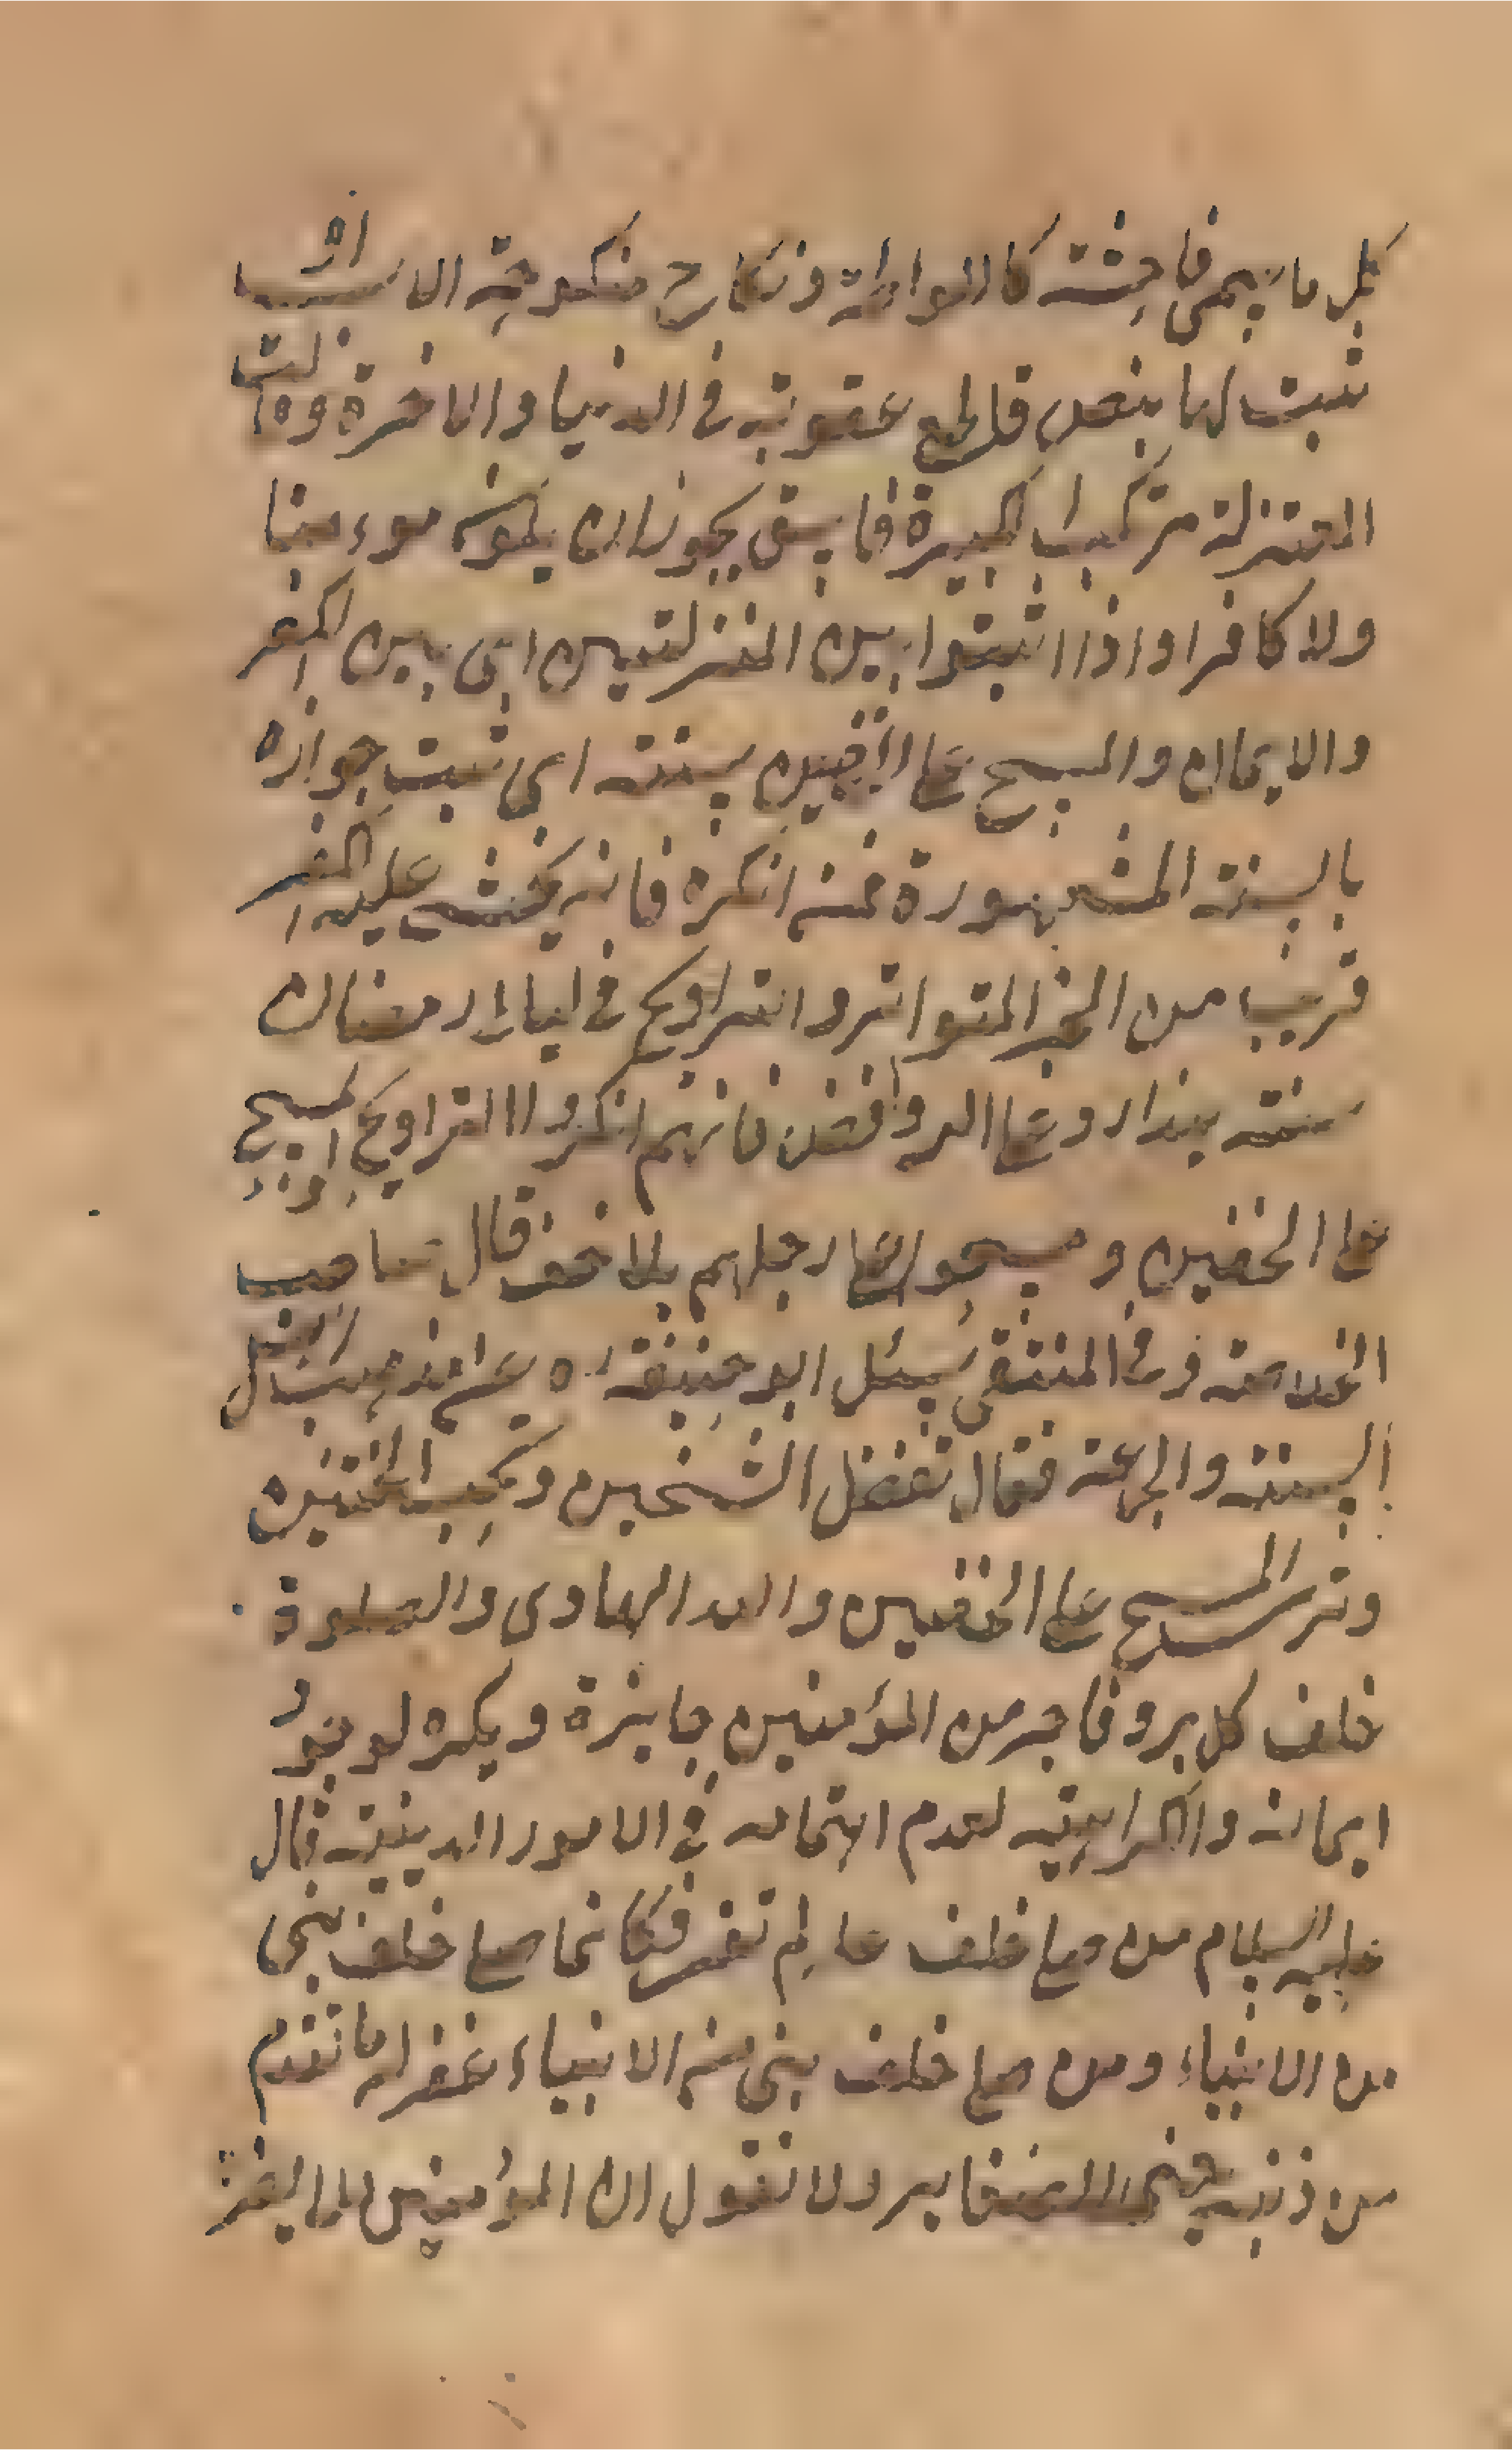 كل ما يسمى فاحشة كاللواطة ونكاح منكوحة الاب اذا
ثبت لها بنص قاطع عقوبة في الدنيا والاخرة وقالت
المعتزلة مرتكب الكبيرة فاسق يجوز ان يكون موءمنا
ولا كافرا واذا اثبتوا بين المنزلتين اى بين الكفر
والايمان والمسح على الخفين سنته اى ثبت جوازه
بالسنة المشهورة فمن انكره فانه يخشى عليه الكفر
قريب من الخبر المتواتر والتراويح في ليالى رمضان
سنته هذا رد على الروافض فانهم انكروا التراويح والمسح
على الخفين ومسحوا على ارجلهم بلا خف قال صاحب
الخلاصة في المنتقى سئل ابو حنيفة ره عن مذهب اهل
السنة والجماعة فقال تفضل الشيخين وتحب الختنين
وترى المسح على الخفين والله الهادى والصلوة
خلف كل بر وفاجر من المؤمنين جايزة ويكره لوجود
ايمانه والكراهية لعدم اهتمامه في الامور الدينية قال
عليه السلام من صلى خلف عالم تقى فكانما صلى خلف نبى
من الانبياء ومن صلى خلف نبى من الانبياء غفر له ما تقدم
من ذنبه يعنى الصغاير ولا نقول ان المؤمنين لا يضره